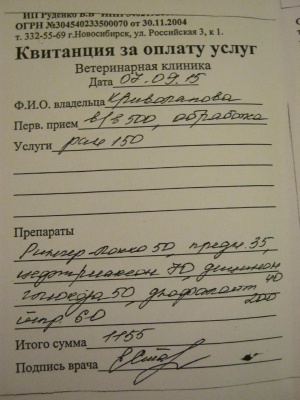 ИП Руденко В.В
ОГРН №304540233500070 от 30.11.2004
т. 332-55-69 г.Новосибирск, ул. Российская 3, к 1.
Квитанция за оплату услуг
Ветеринарная клиника
Дата 07.09.15
Ф.И.О. владельца
Перв. прием в/в 500, обработка
Услуги 150
Препараты
Рингер-Локка 50, предн. 35,
цефтриаксон 70, дицинон 40
глюкоза 50, 200
шпр. 60
Итого сумма 1155
Подпись врача